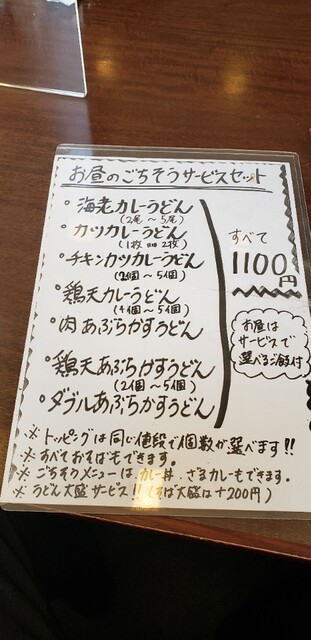 お昼のごちそうサービスセット
・海老カレーうどん
(2尾〜5尾)
・カツカレーうどん
(1枚or2枚)
・チキンカツカレーうどん
(2個〜5個)
・鶏天カレーうどん
(4個〜5個)
・肉あぶらかすうどん
・鶏天あぶらかすうどん
(2個〜5個)
・ダブルあぶらかすうどん
すべて
1100円
お昼は
サービスで
選べるご飯付
※トッピングは同じ値段で個数が選べます!!
※すべておそばもできます。
※ごちそうメニューはカレー丼、ざるカレーもできます。
※うどん大盛サービス!!(そば大盛は+200円)